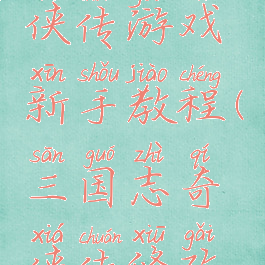 侠传游戏
xīn shǒu jiào chéng
新手教程(
sān guó zhì qí
三国志奇
xiá chuán xiū gǎi
侠传修改